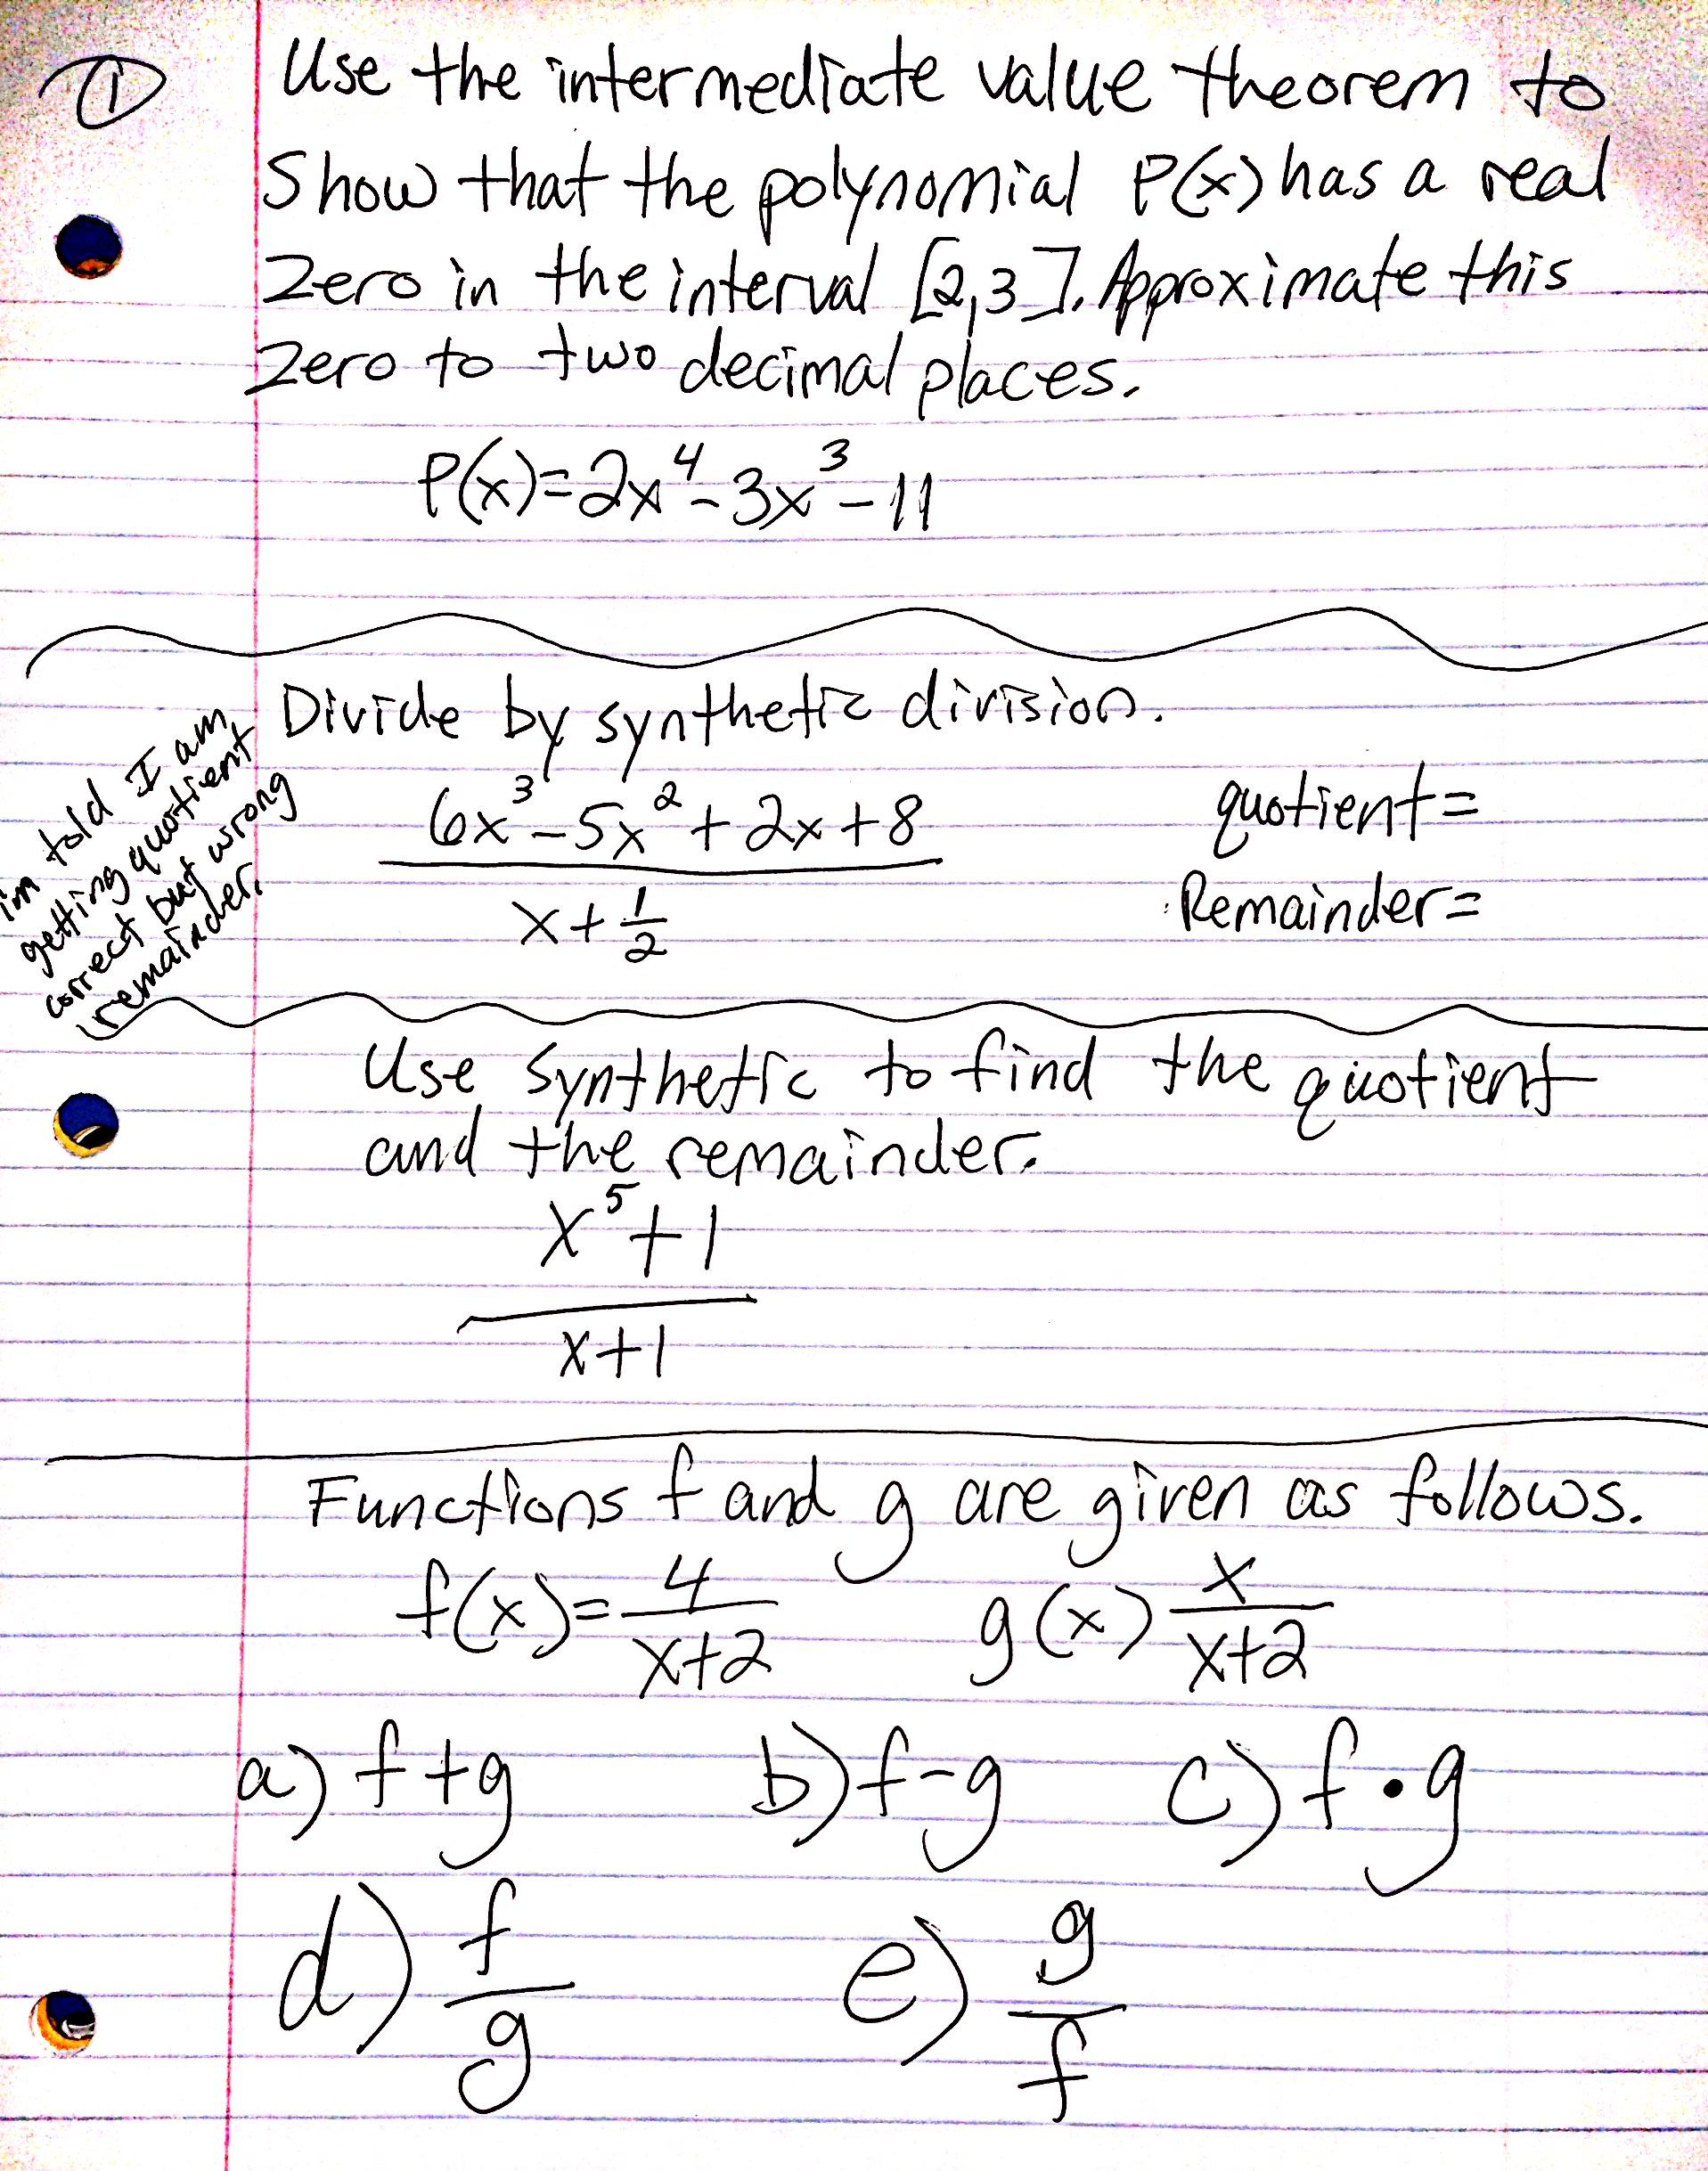 ①
Use the intermediate value theorem to
Show that the polynomial P(x) has a real
Zero in the interval [2,3]. Approximate this
Zero to two decimal places.
P(x)=2x⁴-3x³-11
Divide by synthetic division.
im told I am
getting quotient
correct but wrong
remainder.
6x³-5x²+2x+8
x+1/2
quotient=
Remainder=
Use synthetic to find the quotient
and the remainder.
x⁵+1
x+1
Functions f and g are given as follows.
f(x)=4/x+2 g(x) x/x+2
a) f+g b) f-g c) f•g
d) f/g e) g/f